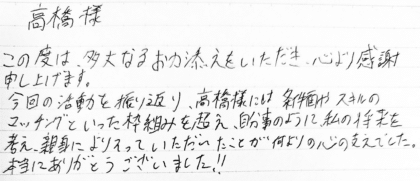 高橋様
この度は、多大なるお力添えをいただき、心より感謝
申し上げます。
今回の活動を振り返り、高橋様には条件面やスキルの
マッチングといった枠組みを超え、自分事のように、私の将来を
考え、親身によりそっていただいたことが何よりの心の支えでした。
本当にありがとうございました!!